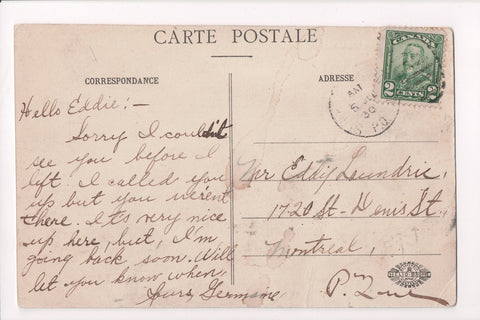 CARTE POSTALE
CORRESPONDANCE
Hello Eddie:-
Sorry I couldn't
see you before I
left. I called you
up but you weren't
there. It's very nice
up here, but, I'm
going back soon. Will
let you know when
Yours Germaine
ADRESSE
CANADA
2 CENTS 2
AM
30
P.Q.
Mr Eddy Laundrie,
1720 St-Denis St.,
Montreal,
P. Que